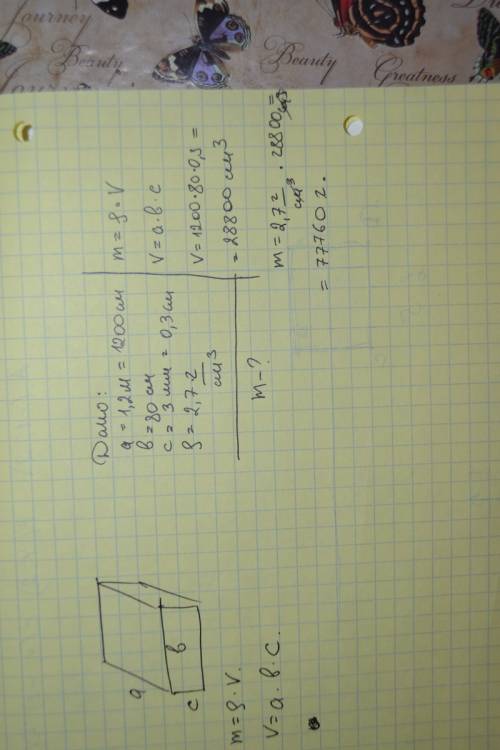 Journey
Beauty
Beauty
Greatness
Journey
Дано:
a = 1,2 м = 1200 см
в = 80 см
c = 3 мм = 0,3 см
ρ = 2,7 г/см³
m - ?
m = ρ • V
V = a · в · c
V = 1200 · 80 · 0,3 =
= 28800 см³
m = 2,7 г/см³ · 28800 см³ =
= 77760 г.
a
в
c
m = ρ · V.
V = a · в · c.